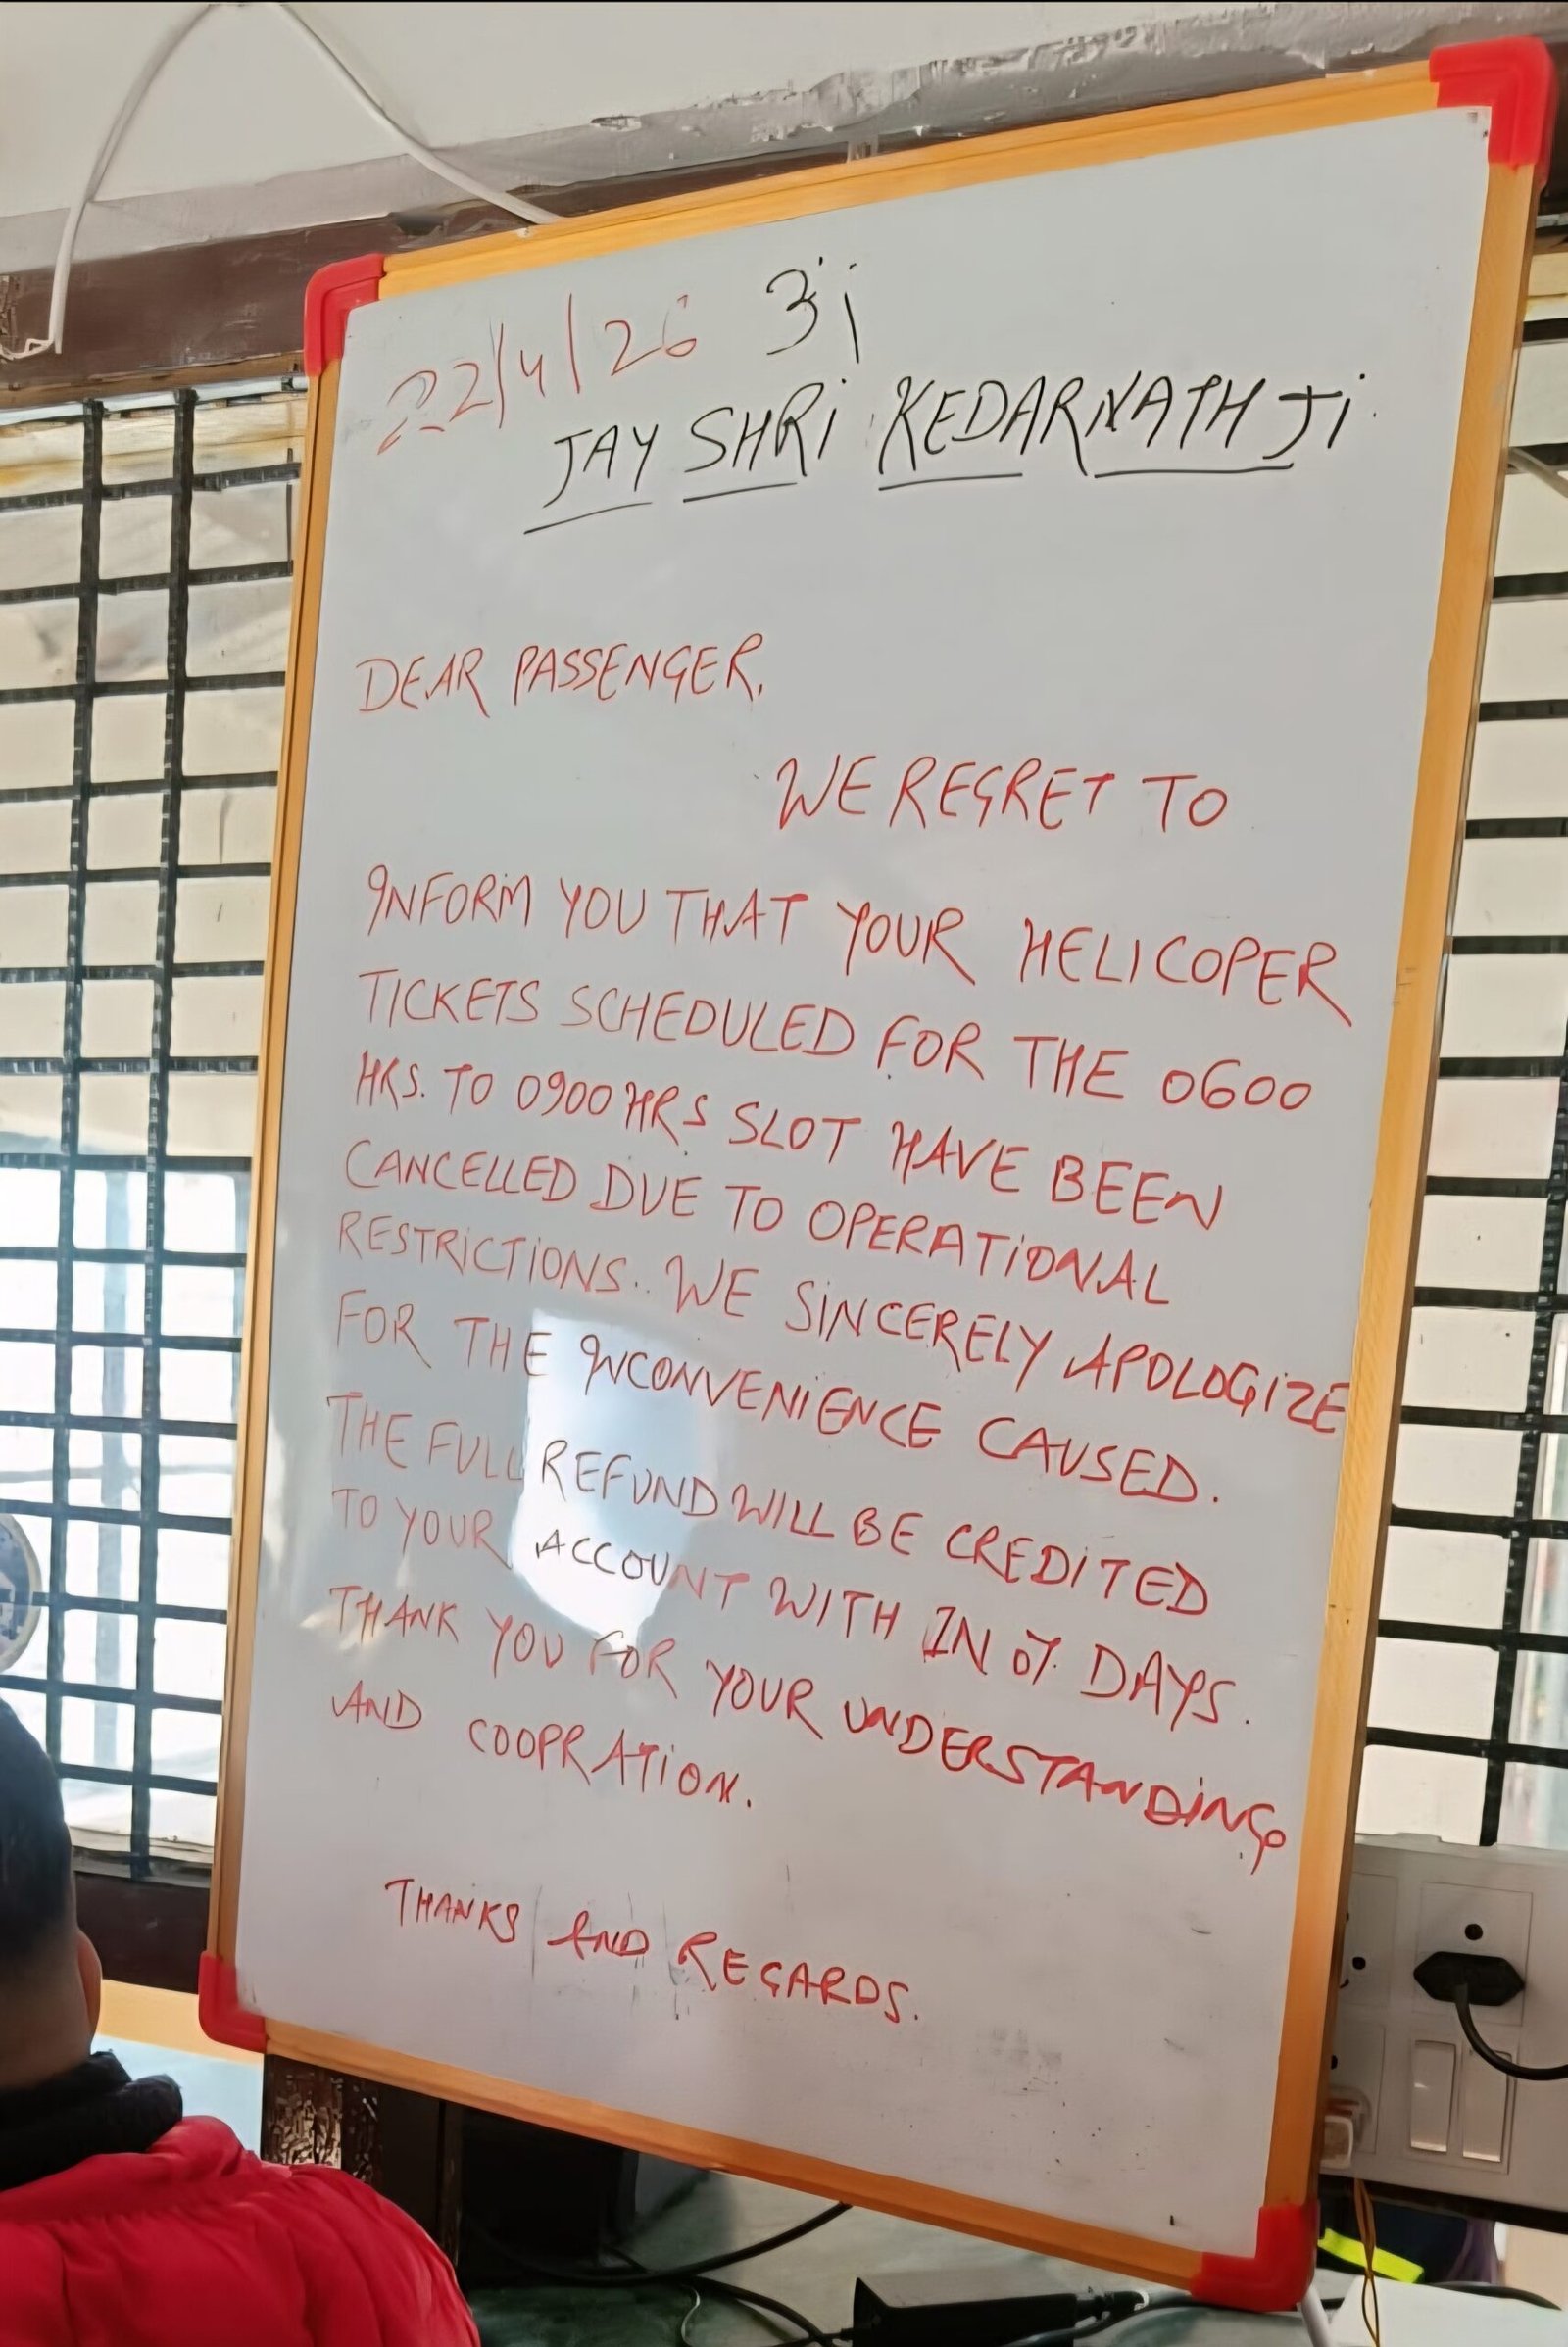 22/4/26 ૐ
JAY SHRi KEDARNATH Ji.
DEAR PASSENGER,
WE REGRET TO
INFORM YOU THAT YOUR HELICOPER
TICKETS SCHEDULED FOR THE 0600
HRS. TO 0900 HRS SLOT HAVE BEEN
CANCELLED DUE TO OPERATIONAL
RESTRICTIONS.. WE SINCERELY APOLOGIZE
FOR THE INCONVENIENCE CAUSED.
THE FULL REFUND WILL BE CREDITED
TO YOUR ACCOUNT WITH IN DAYS.
THANK YOU FOR YOUR UNDERSTANDING
AND COOPRATION.
THANKS AND REGARDS.